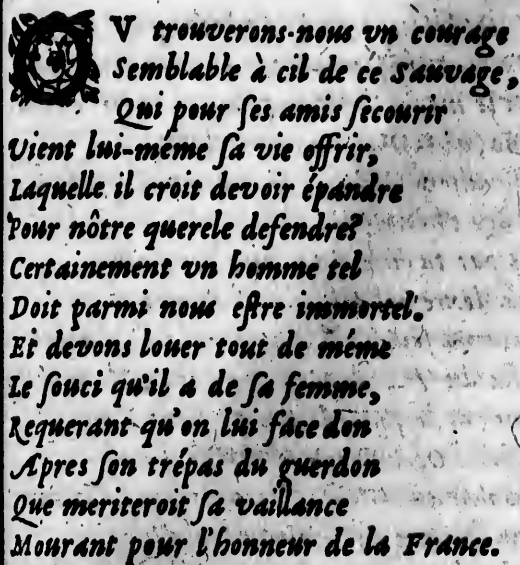 OV trouverons-nous vn courage
Semblable à cil de ce Sauvage,
Qui pour ſes amis ſecourir
Vient lui-méme ſa vie offrir,
Laquelle il croit devoir épandre
Pour nôtre querele defendre?
Certainement vn homme tel
Doit parmi nous eſtre immortel.
Et devons louer tout de méme
Le ſouci qu'il a de ſa femme,
Requerant qu'on lui face don
Apres ſon trépas du guerdon
Que meriteroit ſa vaillance
Mourant pour l'honneur de la France.